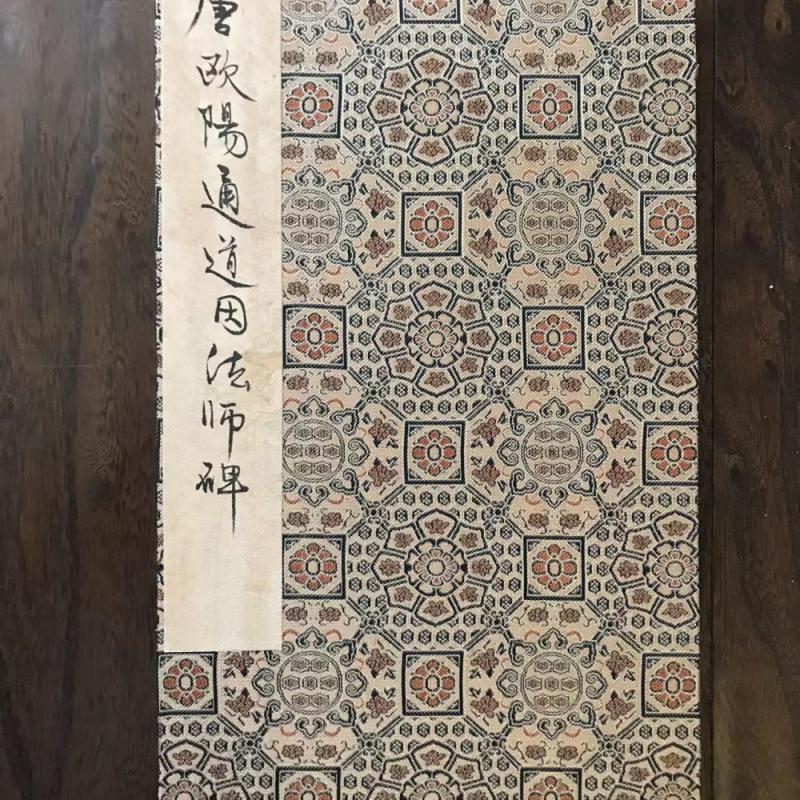 唐欧陽通道因法师碑